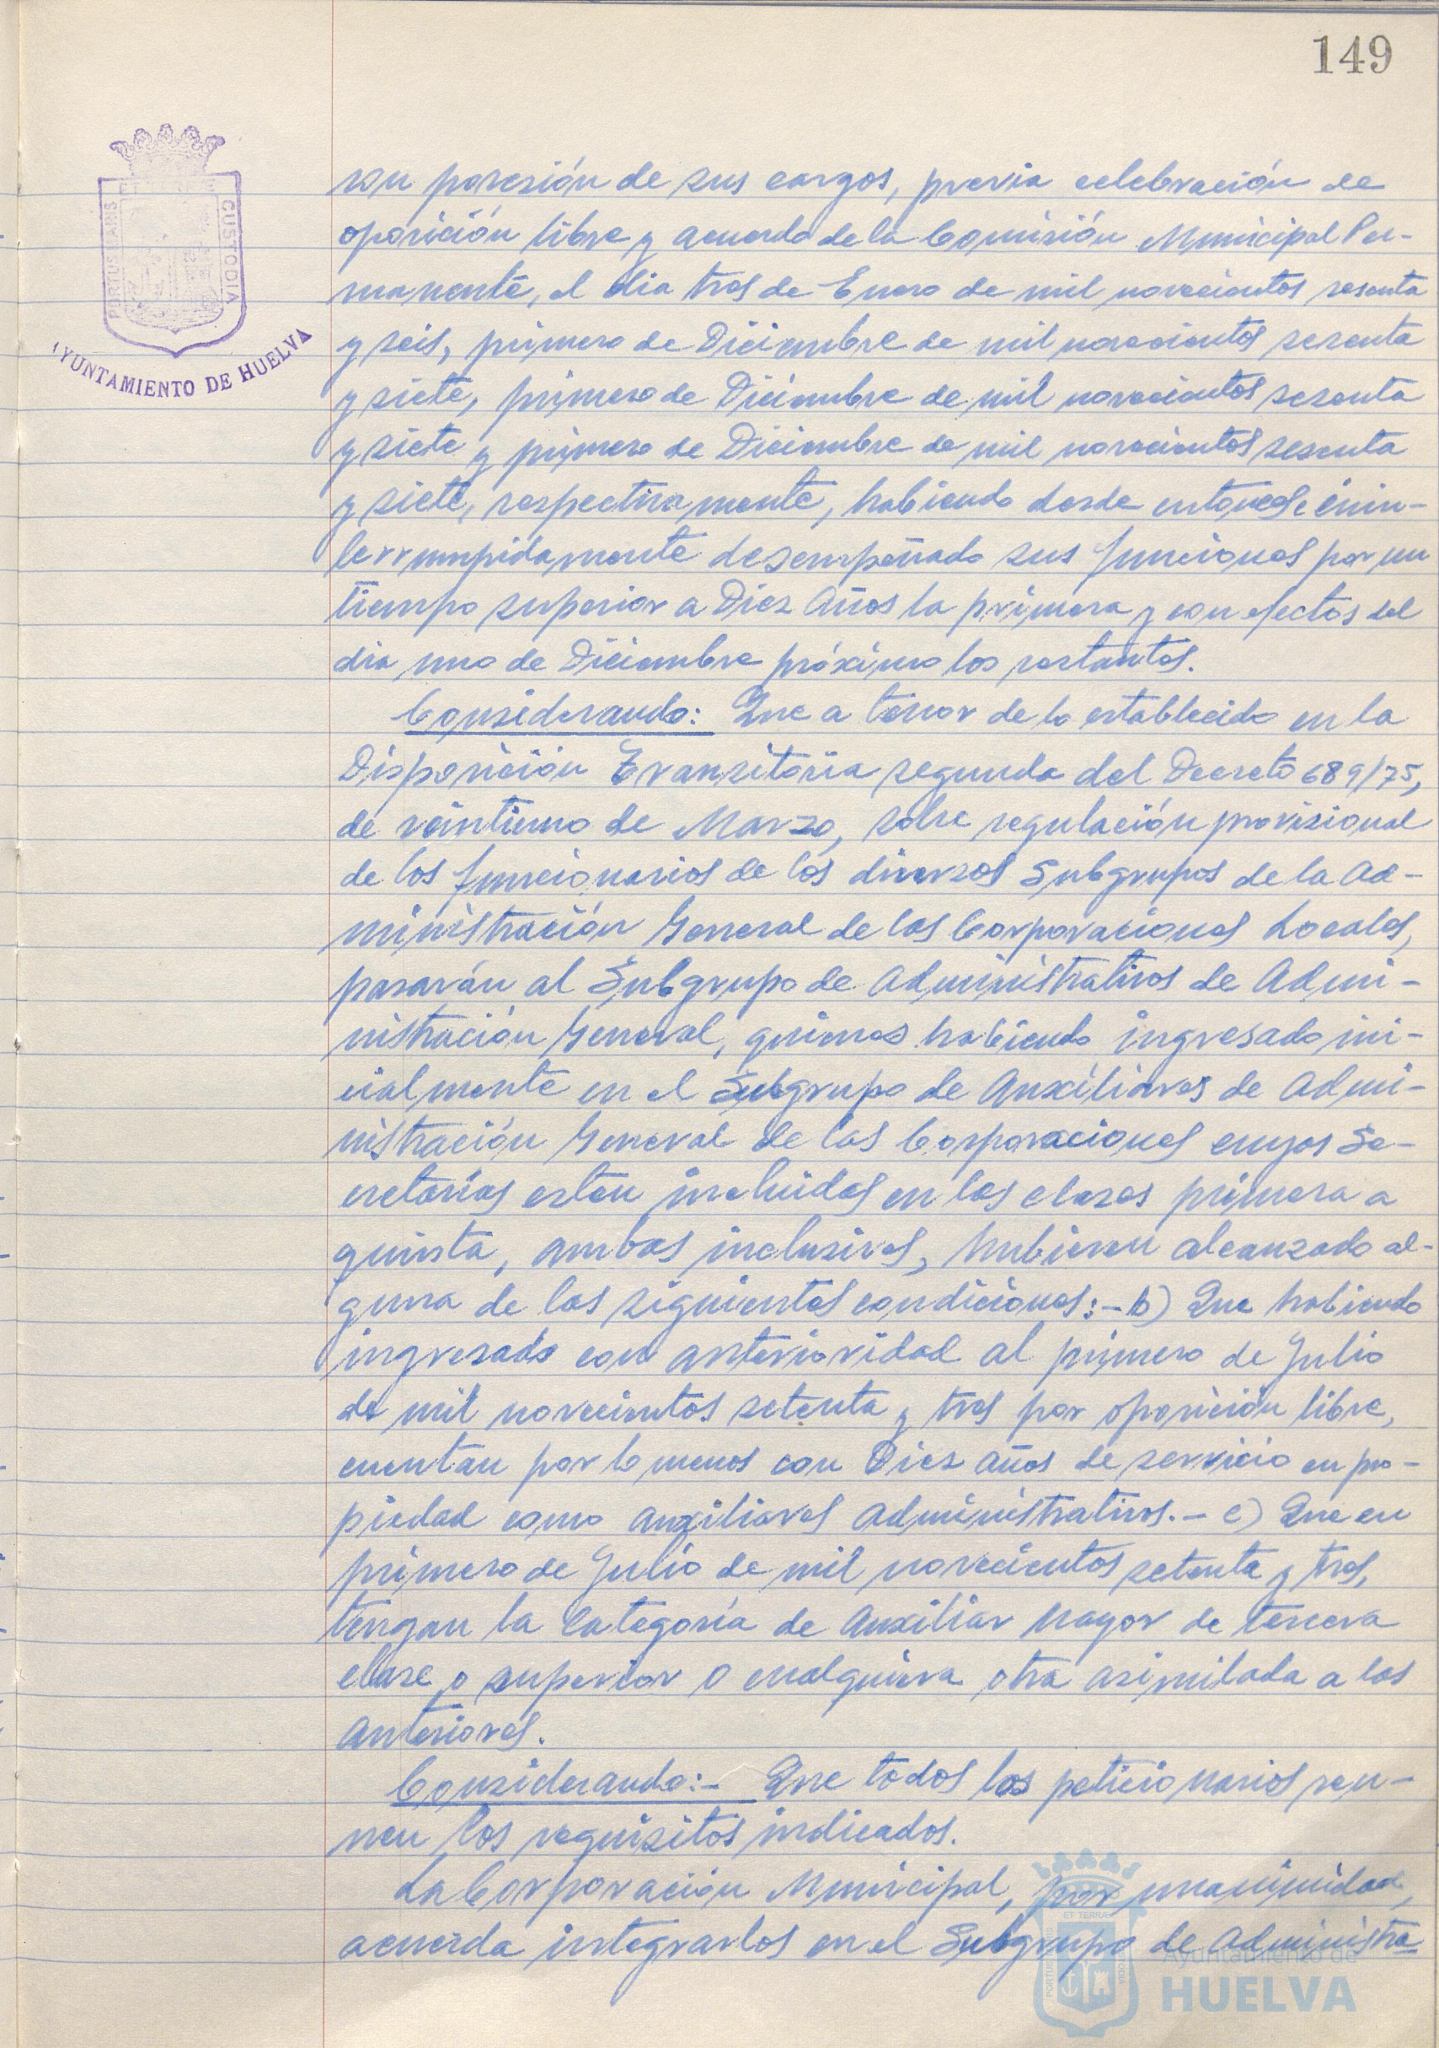 149
PORTUS MARIS ET TERRÆ CUSTODIA
AYUNTAMIENTO DE HUELVA
ron posesión de sus cargos, previa celebración de
oposición libre y acuerdo de la Comisión Municipal Per-
manente, el dia tres de Enero de mil novecientos sesenta
y seis, primero de Diciembre de mil novecientos sesenta
y siete, primero de Diciembre de mil novecientos sesenta
y siete y primero de Diciembre de mil novecientos sesenta
y siete, respectivamente, habiendo desde entonces e inin-
terrumpidamente desempeñado sus funciones por un
tiempo superior a Diez Años la primera y con efectos del
dia uno de Diciembre próximo los restantes.
Considerando: Que a tenor de lo establecido en la
Disposición Transitoria segunda del Decreto 689/75,
de veintiuno de Marzo, sobre regulación provisional
de los funcionarios de los diversos Subgrupos de la Ad-
ministración General de las Corporaciones Locales,
pasarán al Subgrupo de Administrativos de Admi-
nistración General, quienes habiendo ingresado ini-
cialmente en el Subgrupo de Auxiliares de Admi-
nistración General de las Corporaciones cuyas Se-
cretarías esten incluidas en las clases primera a
quinta, ambas inclusives, hubieran alcanzado al-
guna de las siguientes condiciones:- b) Que habiendo
ingresado con anterioridad al primero de Julio
de mil novecientos setenta y tres por oposición libre,
cuentan por lo menos con Diez años de servicio en pro-
piedad como auxiliares Administrativos.- c) Que en
primero de Julio de mil novecientos setenta y tres,
tengan la Categoría de Auxiliar Mayor de tercera
clase o superior o cualquiera otra asimilada a las
anteriores.
Considerando:- Que todos los peticionarios reu-
nen los requisitos indicados.
La Corporación Municipal, por unanimidad,
acuerda integrarlos en el Subgrupo de Administra-
Ayuntamiento de
HUELVA